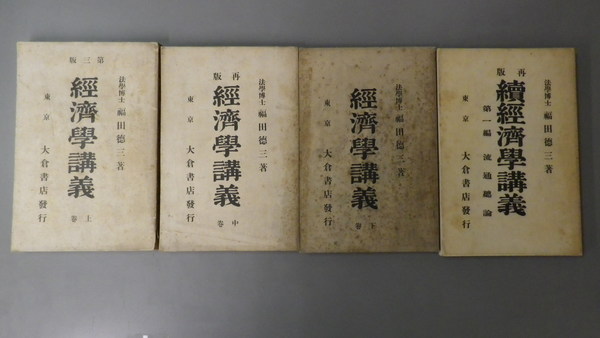 第三版
法學博士 福田德三著
經濟學講義
上卷
東京 大倉書店發行
再版
法學博士 福田德三著
經濟學講義
中卷
東京 大倉書店發行
法學博士 福田德三著
經濟學講義
下卷
東京 大倉書店發行
再版
法學博士 福田德三著
續經濟學講義
第一編 流通總論
東京 大倉書店發行